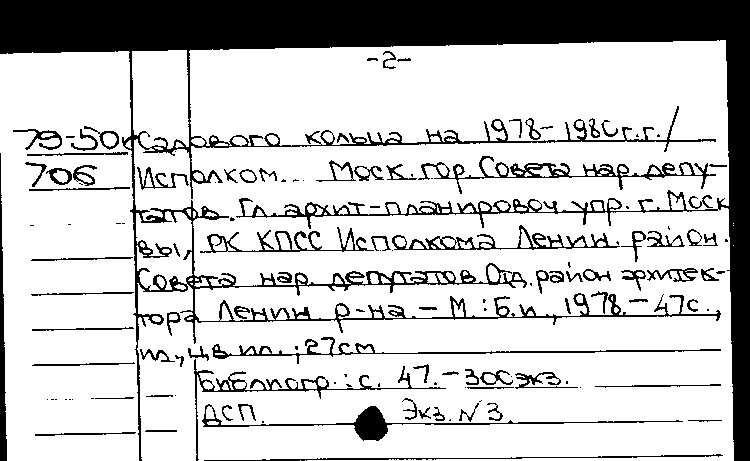 -2-
79-50к Садового кольца на 1978-1980г.г./
706 Исполком. Моск. гор. Совета нар. депу-
татов. Гл. архит-планировоч. упр. г. Моск
вы, РК КПСС Исполкома Ленин. район.
Совета нар. депутатов. Отд. район архитек-
тора Ленин р-на. – М.: Б.и., 1978. – 47с.,
ил., цв ил.; 27см.
Библиогр.: с. 47. – 300экз.
ДСП. Экз. №3.